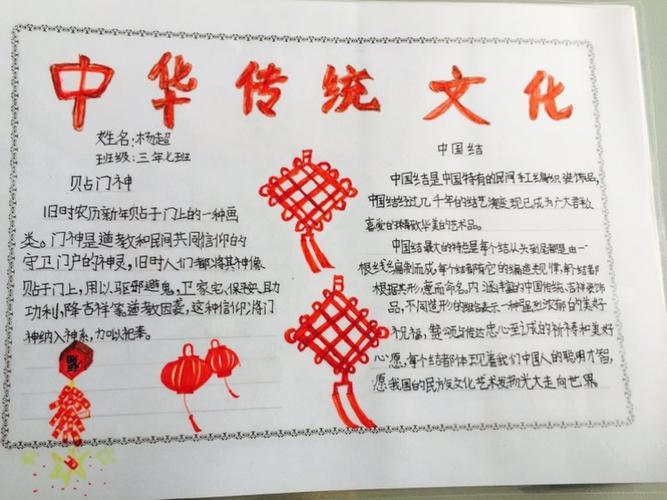 中华传统文化
姓名:杨超
班级:三年七班
贴门神
旧时农历新年贴于门上的一种画
类。门神是道教和民间共同信仰的
守卫门户的神灵,旧时人们都将其神像
贴于门上,用以驱邪避鬼,卫家宅,保平安,助
功利,降吉祥等,道教因袭,这种信仰,将门
神纳入神系,加以祀奉。
福
中国结
中国结是中国特有的民间手工编织装饰品,
中国结经过几千年的结艺演变现已成为广大群众
喜爱的精致华美的艺术品。
中国结最大的特点是每个结从头到尾都是由一
根丝线编制而成,每个结都有它的编造规律,每个结都
根据其形,意而命名,内涵丰富的中国传统吉祥装饰
品,不同造形的组结表示一种强烈浓郁的美好
祝福,赞颂与传达忠心至诚的祈祷和美好
心愿,每个结都体现着我们中国人的聪明才智,
愿我国的民族文化艺术发扬光大走向世界